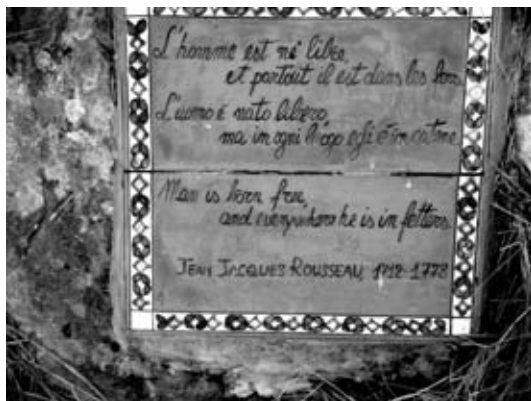 L'homme est né libre,
et partout il est dans les fers
L'uomo é nato libero,
ma in ogni luogo egli é in catene
Man is born free,
and everywhere he is in fetters
JEAN JACQUES ROUSSEAU, 1712-1778